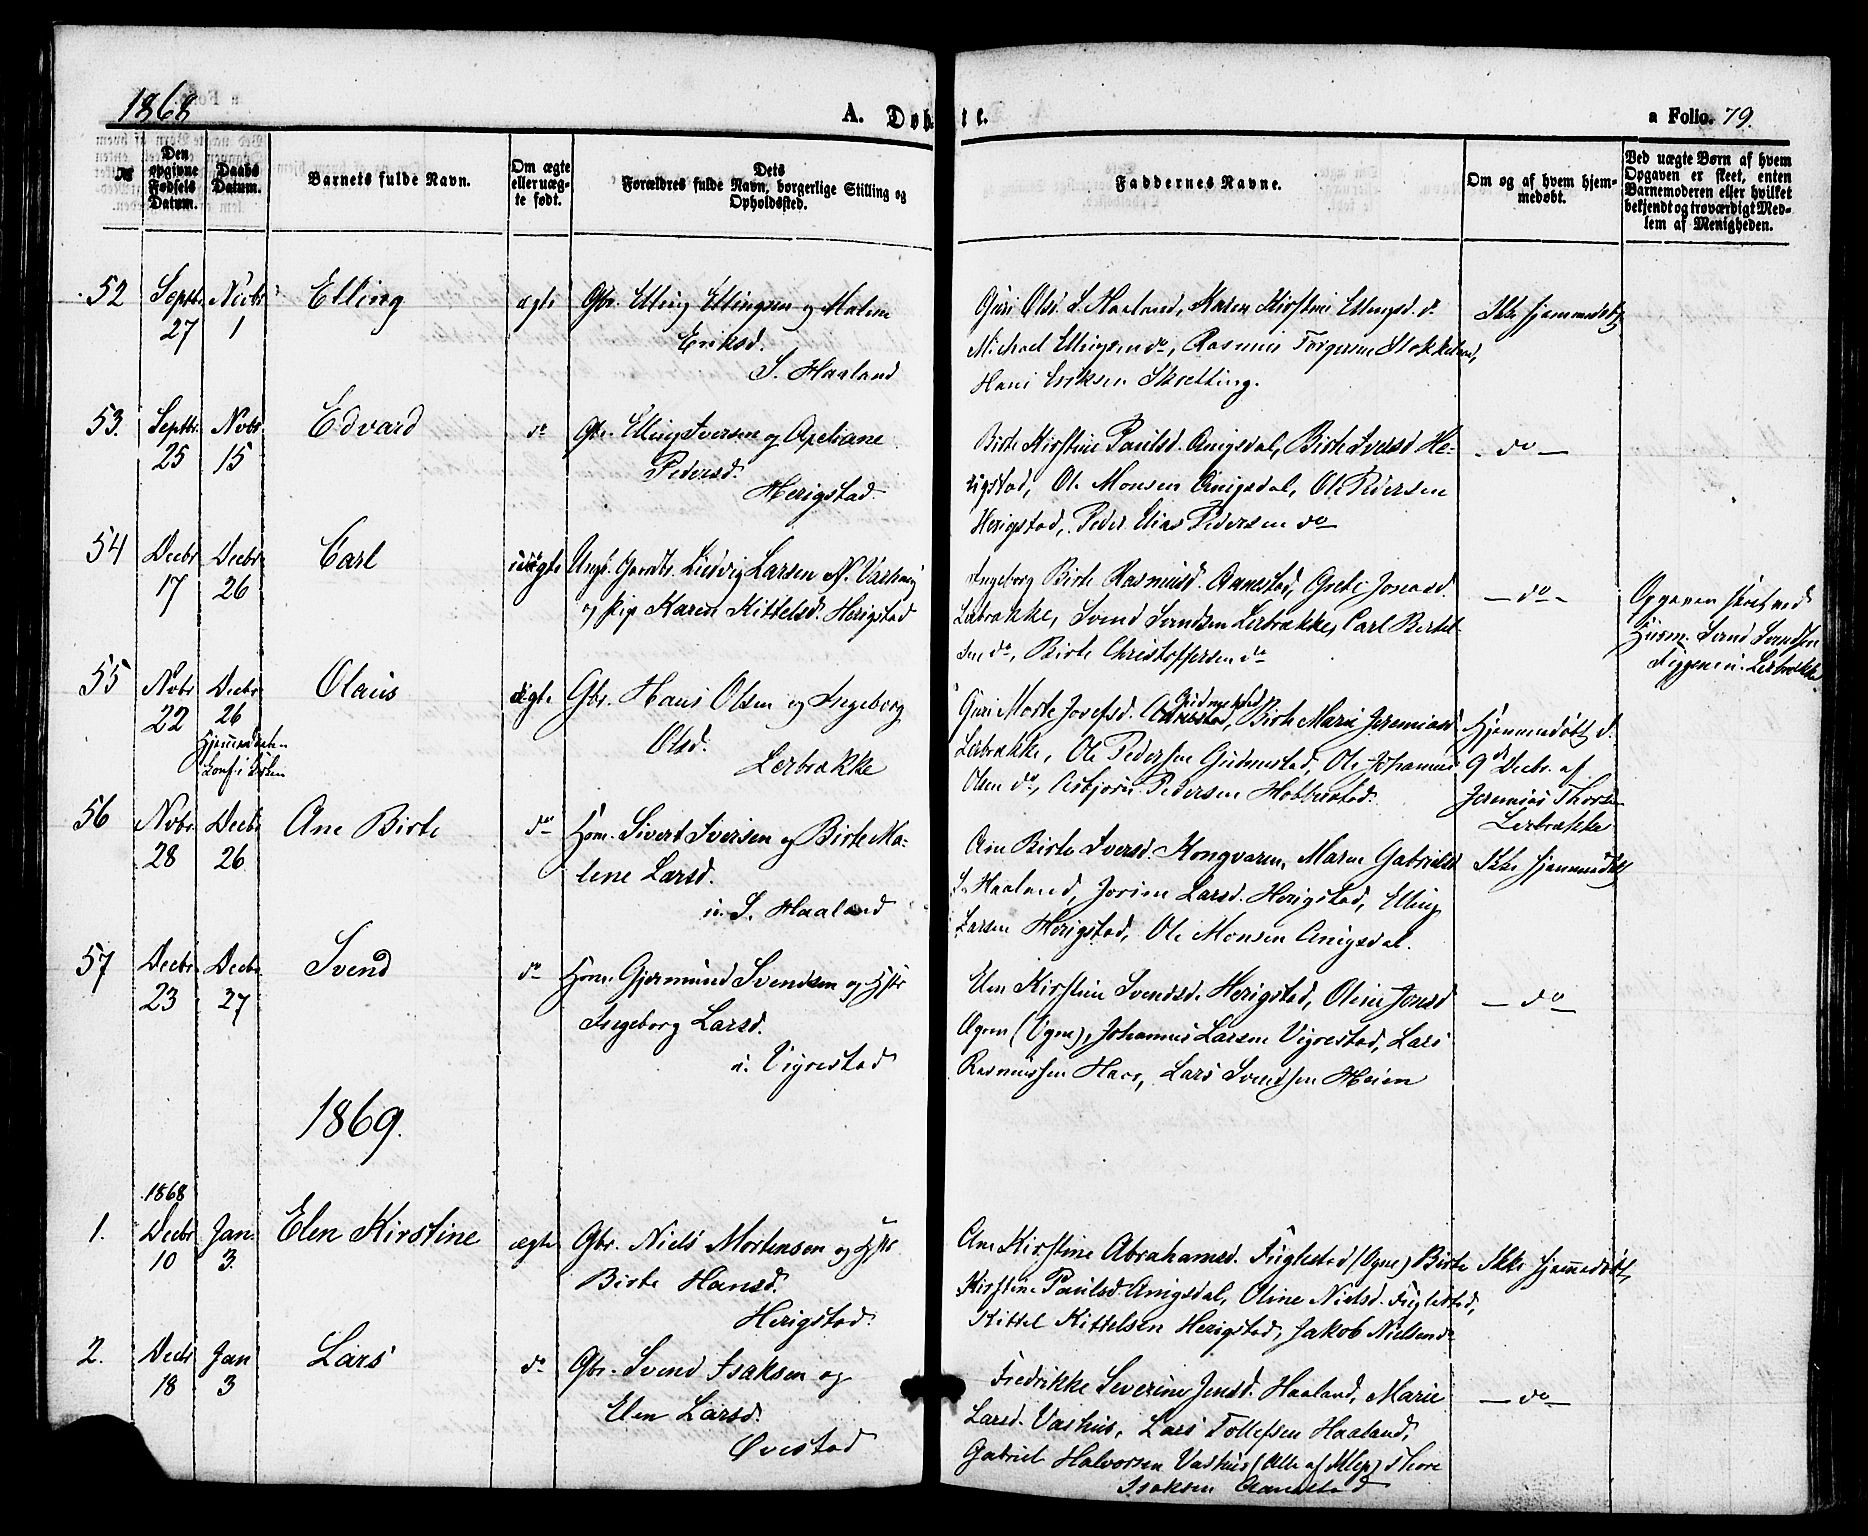 1868
A. Døbte.
a Folio. 79.
№
Den opgivne Fødsels Datum.
Daabs Datum.
Barnets fulde Navn.
Om ægte eller uægte født.
Dets Forældres fulde Navn, borgerlige Stilling og Opholdssted.
Faddernes Navne.
Om og af hvem hjemmedøbt.
Ved uægte Børn af hvem Opgaven er skeet, enten Barnemoderen eller hvilket bekjendt og troværdigt Medlem af Menigheden.
52 Septb. 27 Novbr 1 Elling ægte
Gbr. Elling Ellingsen og Malene
Eriksd.
S. Haaland
Guri Olsd. S. Haaland, Karen Kirstine Ellingsd. do
Michael Ellingsen do, Rasmus Torgersen Stokkeland,
Hans Eriksen Skretting.
Ikke hjemmedøbt
53. Septbr. 25 Novbr. 15 Edvard do
Gbr. Elling Iversen og Axeliane
Pedersd.
Herigstad.
Birte Kirstine Paulsd. Anigsdal, Birte Iversd He-
rigstad, Ole Monsen Anigsdal, Ole Pedersen
Herigstad, Peder Elias Pedersen do
- do -
54 Decbr 17 Decbr. 26 Carl uægte
Ungk. Larsen N. Vashuus
og Pige Karen Kittelsd. Herigstad
Ingeborg Birte Rasmusd. Aanestad, Grete Jonasd.
Lerbrække, Svend Svendsen Lerbrække, Carl Bertel-
sen do, Birte Christoffersen do
- do -
Opgaven skeet ved
Husm. Svend Svendsen
u. Lerbrække.
55 Novbr 22 Decbr 26 Olaus ægte
Hjemmedøbt
Konf. i Kirken
Gbr. Hans Olsen og Ingeborg
Olsd.
Lerbrække
Guri Marte Josefsd. Gudmestad, Birte Marie Jeremiasd
Lerbrække, Ole Pedersen Gudmestad, Ole Johannes
Olsen do, Asbjørn Pedersen Hobberstad.
Hjemmedøbt d.
9de Decbr. af
Jeremias Thorsen
Lerbrække
56 Novbr. 28 Decbr 26 Ane Birte do
Hsm. Sivert Iversen og Birte Ma-
lene Larsd.
u. S. Haaland
Ane Birte Iversd. Kongvaren, Maren Gabrielsd
S. Haaland, Jorine Larsd. Herigstad, Elling
Larsen Herigstad, Ole Monsen Anigsdal.
Ikke hjemmedøbt
57 Decbr. 23 Decbr. 27 Svend do
Hsm. Gjermund Svendsen og Hstr
Ingeborg Larsd.
u. Vigrestad
Elen Kirstine Svendsd. Herigstad, Oline Jonsd
Ogem (Ogne), Johannes Larsen Vigrestad, Lars
Rasmussen Haar, Lars Svendsen Meien
- do -
1869.
1. 1868 Decbr 10 Jan. 3. Elen Kirstine ægte
Gbr. Niels Mortensen og Hstr
Birte Hansd.
Herigstad.
Ane Kirstine Abrahamsd. Fuglestad (Ogne) Birte
Kirstine Paulsd. Anigsdal, Oline Nielsd. Fuglestad,
Kittel Kittelsen Herigstad, Jakob Nielsen do
Ikke hjemmedøbt,
2. Decbr 18 Jan 3 Lars do
Gbr. Svend Isaksen og
Elen Larsd.
Øvestad
Fredrikke Severine Jensd. Haaland, Marie
Larsd. Vashus, Lars Tollefsen Haaland,
Gabriel Halvorsen Vashus (Alle af Klep) Thore
Isaksen Aanestad
- do -